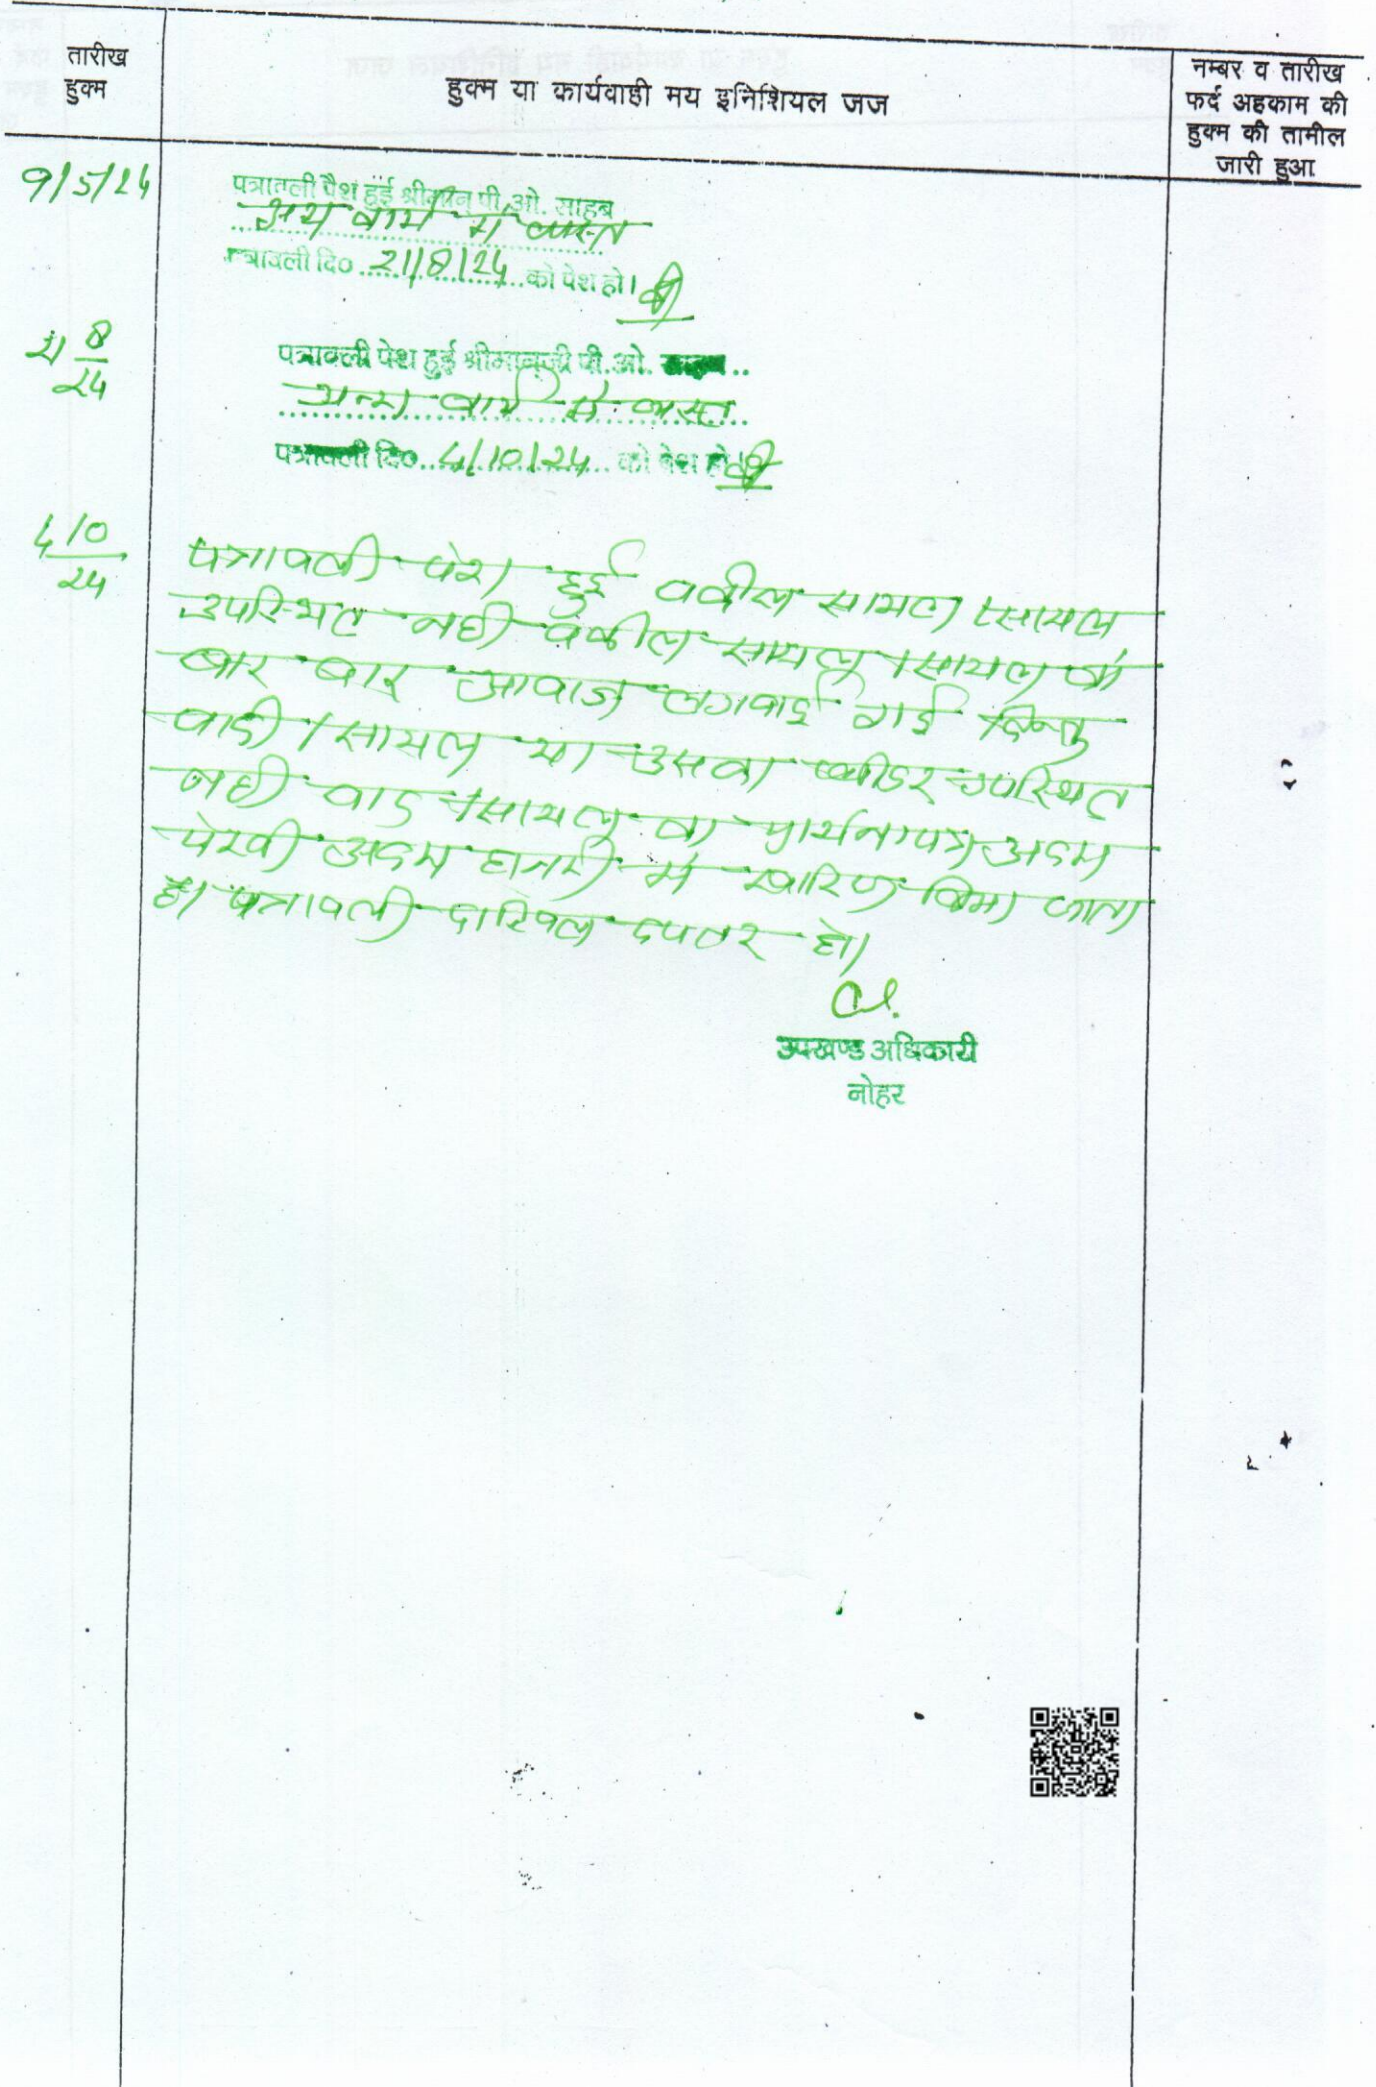 तारीख
हुक्म
हुक्म या कार्यवाही मय इनिशियल जज
नम्बर व तारीख
फर्द अहकाम की
हुक्म की तामील
जारी हुआ
9/5/24
पत्रावली पैश हुई श्रीमान् पी.ओ. साहब
अन्य कार्य में व्यस्त
पत्रावली दि० 21/8/24 को पेश हो।
21 8/24
पत्रावली पेश हुई श्रीमान् जी पी.ओ. साहब
अन्य कार्य में व्यस्त
पत्रावली दि० 4/10/24 को पेश हो
4 10/24
पत्रावली पेश हुई वकील सायल/सायल
उपस्थित नही वकील सायल/सायल को
बार बार आवाज लगवाई गई किन्तु
वादी/सायल या उसका प्लीडर उपस्थित
नही वाद/सायल का प्रार्थनापत्र अदम
पेरवी अदम हाजरी में खारिज किया जाता
है। पत्रावली दाखिल दफ्तर हो।
उपखण्ड अधिकारी
नोहर